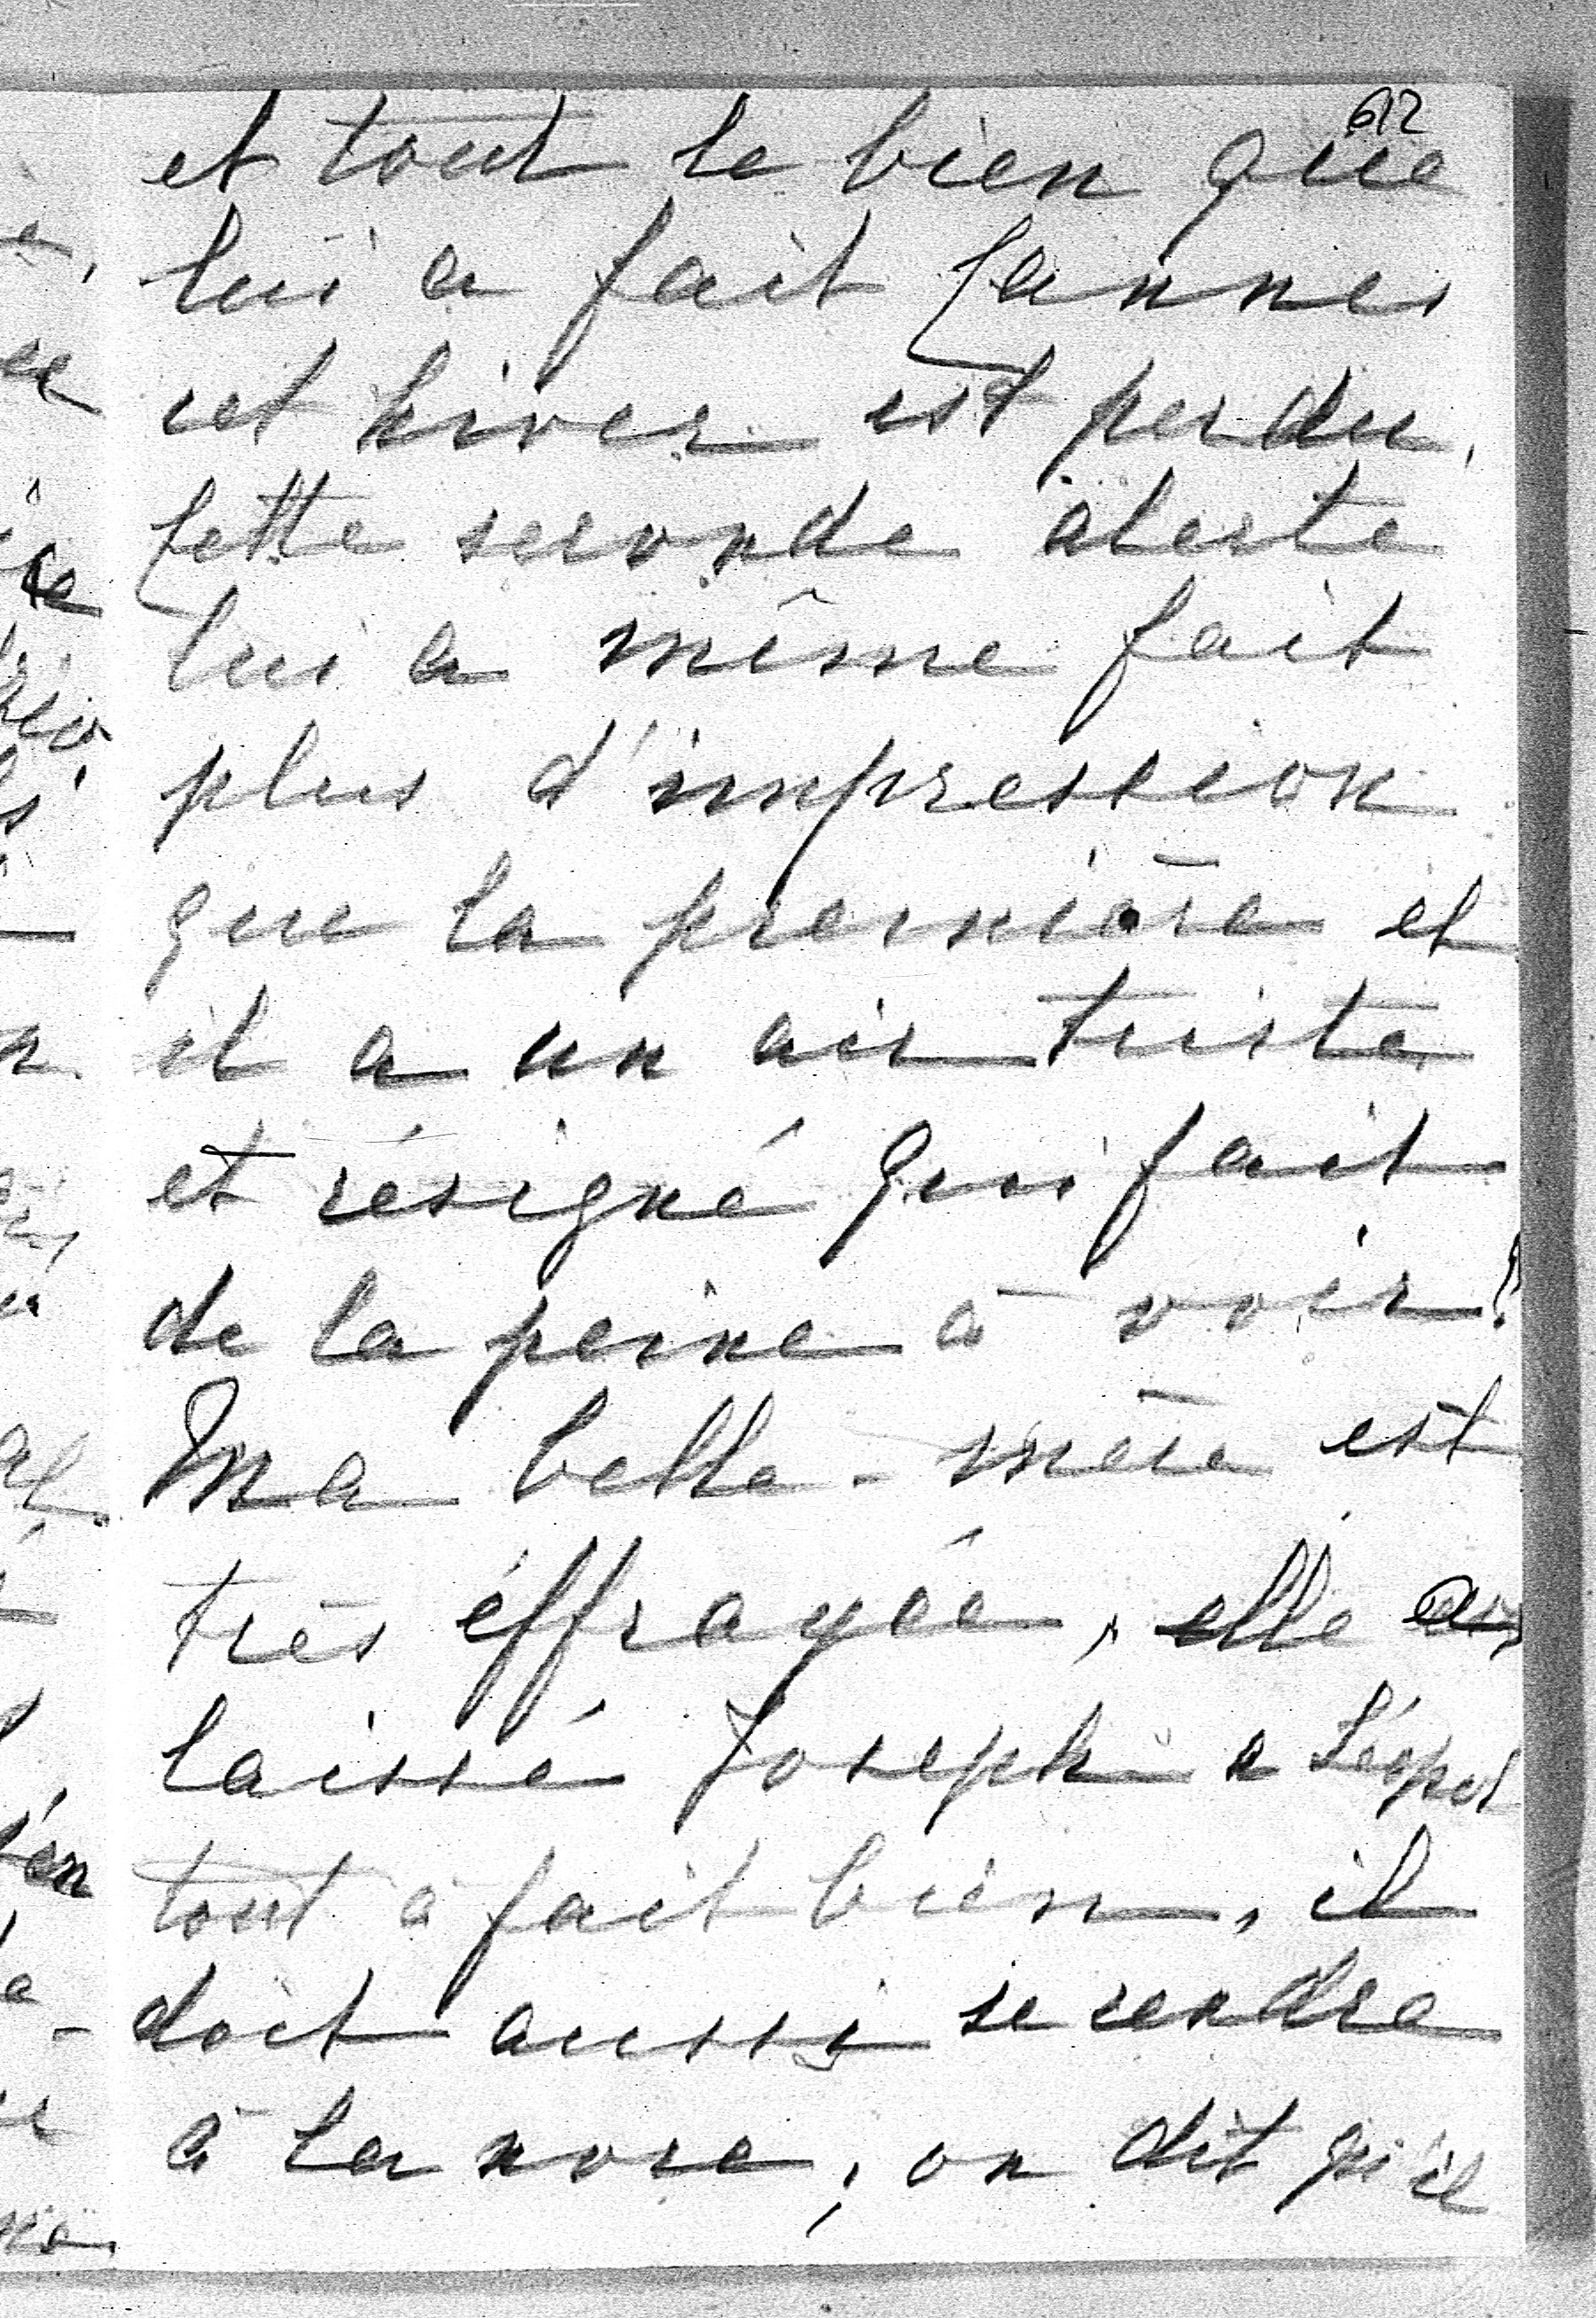 612
et tout le bien que
lui a fait Cannes
cet hiver est perdu,
Cette seconde alerte
lui a même fait
plus d'impression
que la première et
il a un air triste
et résigné qui fait
de la peine à voir!
Ma belle-mère est
très éffrayée, elle a
laissé Joseph a Léopol
tout à fait bien, il
doit aussi se rendre
à la noce, on dit qu'il